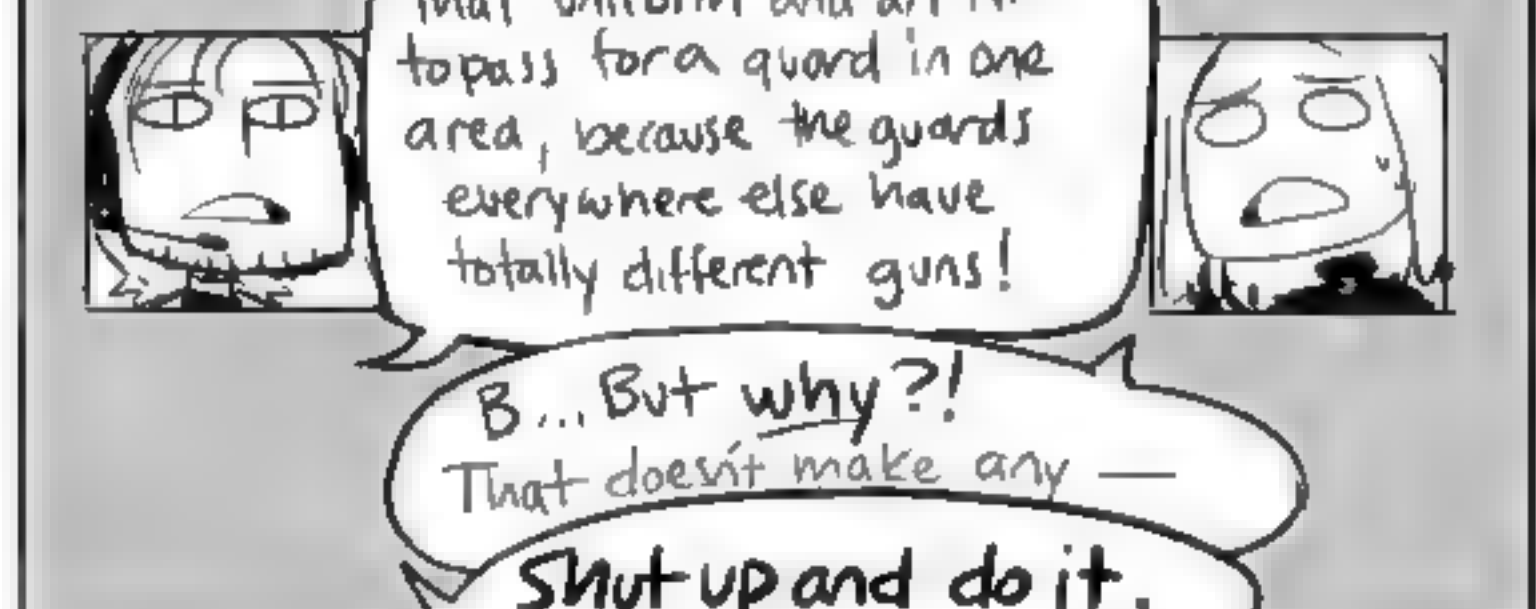 that uniform and an
to pass for a guard in one
area, because the guards
everywhere else have
totally different guns!
B... But why?!
That doesn't make any —
Shut up and do it.